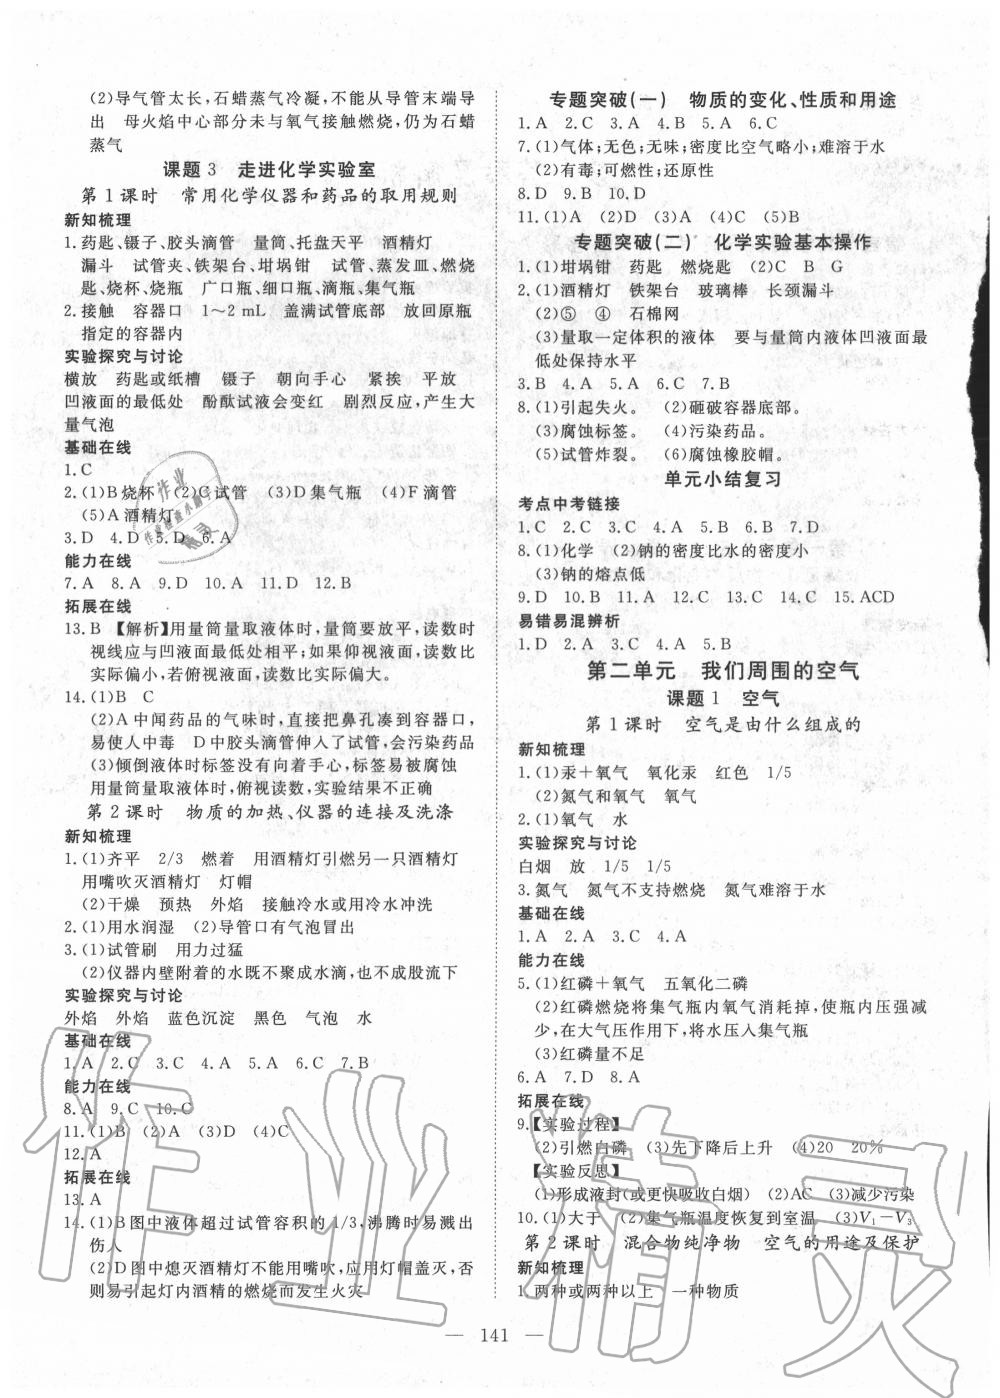 (2)导气管太长,石蜡蒸气冷凝,不能从导管末端导
出　母火焰中心部分未与氧气接触燃烧,仍为石蜡
蒸气
课题 3　走进化学实验室
第 1 课时　常用化学仪器和药品的取用规则
新知梳理
1.药匙、镊子、胶头滴管　量筒、托盘天平　酒精灯
漏斗　试管夹、铁架台、坩埚钳　试管、蒸发皿、燃烧
匙、烧杯、烧瓶　广口瓶、细口瓶、滴瓶、集气瓶
2.接触　容器口　1～2 mL　盖满试管底部　放回原瓶
指定的容器内
实验探究与讨论
横放　药匙或纸槽　镊子　朝向手心　紧挨　平放
凹液面的最低处　酚酞试液会变红　剧烈反应,产生大
量气泡
基础在线
1.C
2.(1)B烧杯　(2)C试管　(3)D集气瓶　(4)F滴管
(5)A酒精灯
3.D　4.D　5.D　6.A
能力在线
7.A　8.A　9.D　10.A　11.D　12.B
拓展在线
13.B　【解析】用量筒量取液体时,量筒要放平,读数时
视线应与凹液面最低处相平;如果仰视液面,读数比
实际偏小,若俯视液面,读数比实际偏大。
14.(1)B　C
(2)A中闻药品的气味时,直接把鼻孔凑到容器口,
易使人中毒　D中胶头滴管伸入了试管,会污染药品
(3)倾倒液体时标签没有向着手心,标签易被腐蚀
用量筒量取液体时,俯视读数,实验结果不正确
第 2 课时　物质的加热、仪器的连接及洗涤
新知梳理
1.(1)齐平　2/3　燃着　用酒精灯引燃另一只酒精灯
用嘴吹灭酒精灯　灯帽
(2)干燥　预热　外焰　接触冷水或用冷水冲洗
2.(1)用水润湿　(2)导管口有气泡冒出
3.(1)试管刷　用力过猛
(2)仪器内壁附着的水既不聚成水滴,也不成股流下
实验探究与讨论
外焰　外焰　蓝色沉淀　黑色　气泡　水
基础在线
1.A　2.C　3.C　4.A　5.A　6.C　7.B
能力在线
8.A　9.C　10.C
11.(1)B　(2)A　(3)D　(4)C
12.A
拓展在线
13.A
14.(1)B图中液体超过试管容积的 1/3,沸腾时易溅出
伤人
(2)D图中熄灭酒精灯不能用嘴吹,应用灯帽盖灭,否
则易引起灯内酒精的燃烧而发生火灾
专题突破(一)　物质的变化、性质和用途
1.A　2.C　3.A　4.B　5.A　6.C
7.(1)气体;无色;无味;密度比空气略小;难溶于水
(2)有毒;可燃性;还原性
8.D　9.B　10.D
11.(1)A　(2)D　(3)A　(4)C　(5)B
专题突破(二)　化学实验基本操作
1.(1)坩埚钳　药匙　燃烧匙　(2)C　B　G
2.(1)酒精灯　铁架台　玻璃棒　长颈漏斗
(2)⑤　④　石棉网
(3)量取一定体积的液体　要与量筒内液体凹液面最
低处保持水平
3.B　4.A　5.A　6.C　7.B
8.(1)引起失火。　(2)砸破容器底部。
(3)腐蚀标签。　(4)污染药品。
(5)试管炸裂。　(6)腐蚀橡胶帽。
单元小结复习
考点中考链接
1.C　2.C　3.C　4.A　5.B　6.B　7.D
8.(1)化学　(2)钠的密度比水的密度小
(3)钠的熔点低
9.D　10.B　11.A　12.C　13.C　14.C　15.ACD
易错易混辨析
1.D　2.A　3.C　4.A　5.B
第二单元　我们周围的空气
课题 1　空气
第 1 课时　空气是由什么组成的
新知梳理
1.(1)汞＋氧气　氧化汞　红色　1/5
(2)氮气和氧气　氧气
2.(1)氧气　水
实验探究与讨论
白烟　放　1/5　1/5
3.氮气　氮气不支持燃烧　氮气难溶于水
基础在线
1.A　2.A　3.C　4.A
能力在线
5.(1)红磷＋氧气　五氧化二磷
(2)红磷燃烧将集气瓶内氧气消耗掉,使瓶内压强减
少,在大气压作用下,将水压入集气瓶
(3)红磷量不足
6.A　7.D　8.A
拓展在线
9.【实验过程】
(2)引燃白磷　(3)先下降后上升　(4)20　20%
【实验反思】
(1)形成液封(或更快吸收白烟)　(2)AC　(3)减少污染
10.(1)大于　(2)集气瓶温度恢复到室温　(3)V₁－V₃
第 2 课时　混合物纯净物　空气的用途及保护
新知梳理
1.两种或两种以上　一种物质
— 141 —
作业精灵